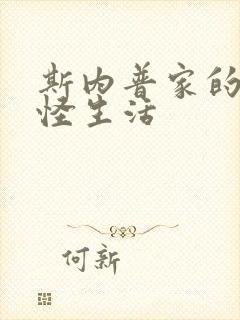 斯内普家的
怪生活
何新